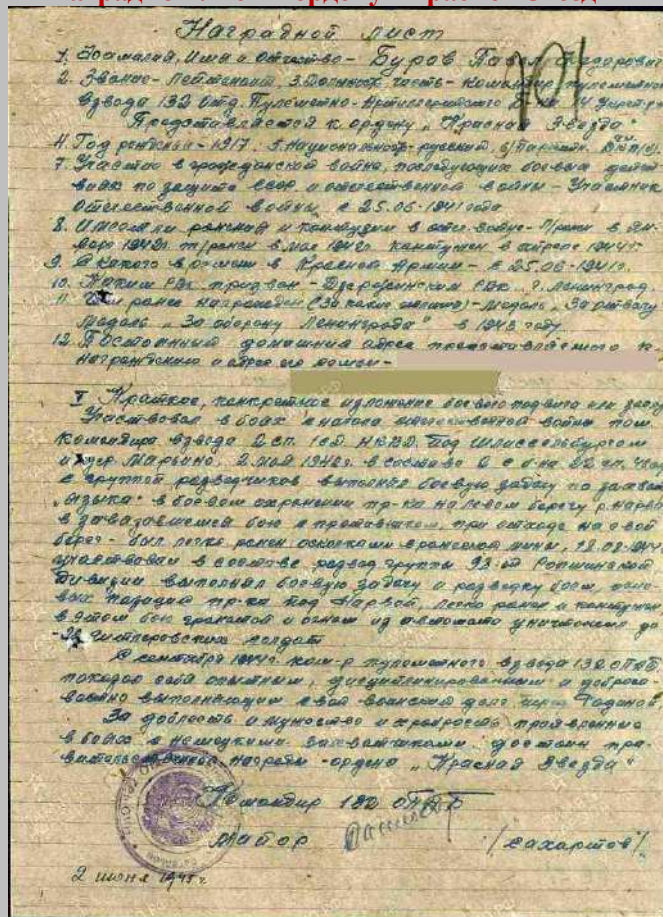 Наградной лист
1. Фамилия, Имя и Отчество - Буров Павел
2. Звание - Лейтенант, 3. Должность, часть - Командир пулеметного
взвода 132 Отд. Пулеметно-Артиллерийского
Представляется к ордену „Красная Звезда"
4. Год рождения - 1917. 5. Национальность - русский 6) Партийн.
7. Участие в гражданской войне, последующих боевых дейст-
виях по защите СССР и отечественной войне - Участник
Отечественной войны с 25.06-1941 года
8. Имеет ли ранения и контузии в отеч. войне - л/ранен в Ян-
варе 1942г. т/ранен в мае 1942г. контужен в 1944г.
9. С какого времени в Красной Армии - с 25.06-1941г.
10. Каким РВК призван - Дзержинским РВК, г. Ленинград.
11. Чем ранее награжден (за какие отличия) - Медаль „За отвагу
Медаль „За оборону Ленинграда" в 1943 году.
12. Постоянный домашний адрес представляемого к
награждению и адрес его семьи -
I Краткое, конкретное изложение боевого подвига или
Участвовал в боях с начала отечественной войны пом.
командира взвода 2 сп. 1 сд НКВД. Под Шлиссельбургом
и Марьино, 2 мая 1942г. в составе
с группой разведчиков выполнял боевую задачу по захвату
„языка" в боевом охранении пр-ка на левом берегу р.
в завязавшемся бою с противником, при отходе на свой
берег - был легко ранен осколками вражеской мины,
участвовал в составе развед группы Ропшинской
Дивизии выполнял боевую задачу и разведку боем,
вых позиций пр-ка под Нарвой, легко ранен и контужен
в этом бою гранатой и огнем из автомата уничтожил до
гитлеровских солдат
С сентября 1944г. ком-р пулеметного взвода 132 ОПАБ
показал себя опытным, дисциплинированным и добросо-
вестно выполняющим свой воинский долг перед Родиной
За доблесть и мужество и храбрость проявленные
в боях с немецкими захватчиками достоин пра-
вительственной награды - ордена „Красная Звезда"
Командир 132 ОПАБ
Майор
2 июня 1945г